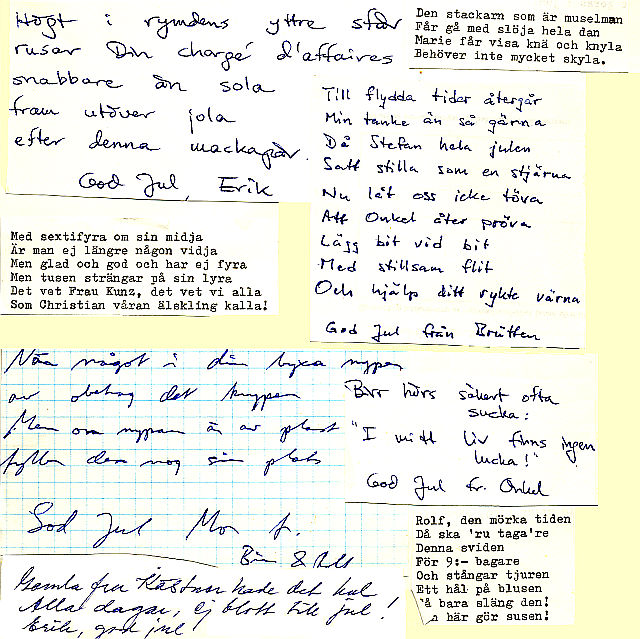 Högt i rymdens yttre sfär
rusar Din chargé d'affaires
snabbare än sola
fram utöver jola
efter denna mackapär.
God Jul, Erik
Den stackarn som är muselman
Får gå med slöja hela dan
Marie får visa knä och knyla
Behöver inte mycket skyla.
Till flydda tider återgår
Min tanke än så gärna
Då Stefan hela julen
Satt stilla som en stjärna
Nu låt oss icke töva
Att Onkel åter pröva
Lägg bit vid bit
Med stillsam flit
Och hjälp ditt rykte värna
God Jul från Britten
Med sextifyra om sin midja
Är man ej längre någon vidja
Men glad och god och har ej fyra
Men tusen strängar på sin lyra
Det vet Frau Kunz, det vet vi alla
Som Christian våran älskling kalla!
När något i din byxa nyper
av obehag det knyper
Men om nypan är av plast
fyller den nog sin plats
God Jul Mor
&
Birr hörs säkert ofta
sucka:
"I mitt liv finns ingen
lucka!"
God Jul fr. Onkel
Rolf, den mörka tiden
Då ska 'ru taga're
Denna sviden
För 9:- bagare
Och stångar tjuren
Ett hål på blusen
Så bara släng den!
n här gör susen!
Gamla fru Kästner hade det kul
Alla dagar, ej blott till jul!
Erik, god jul!